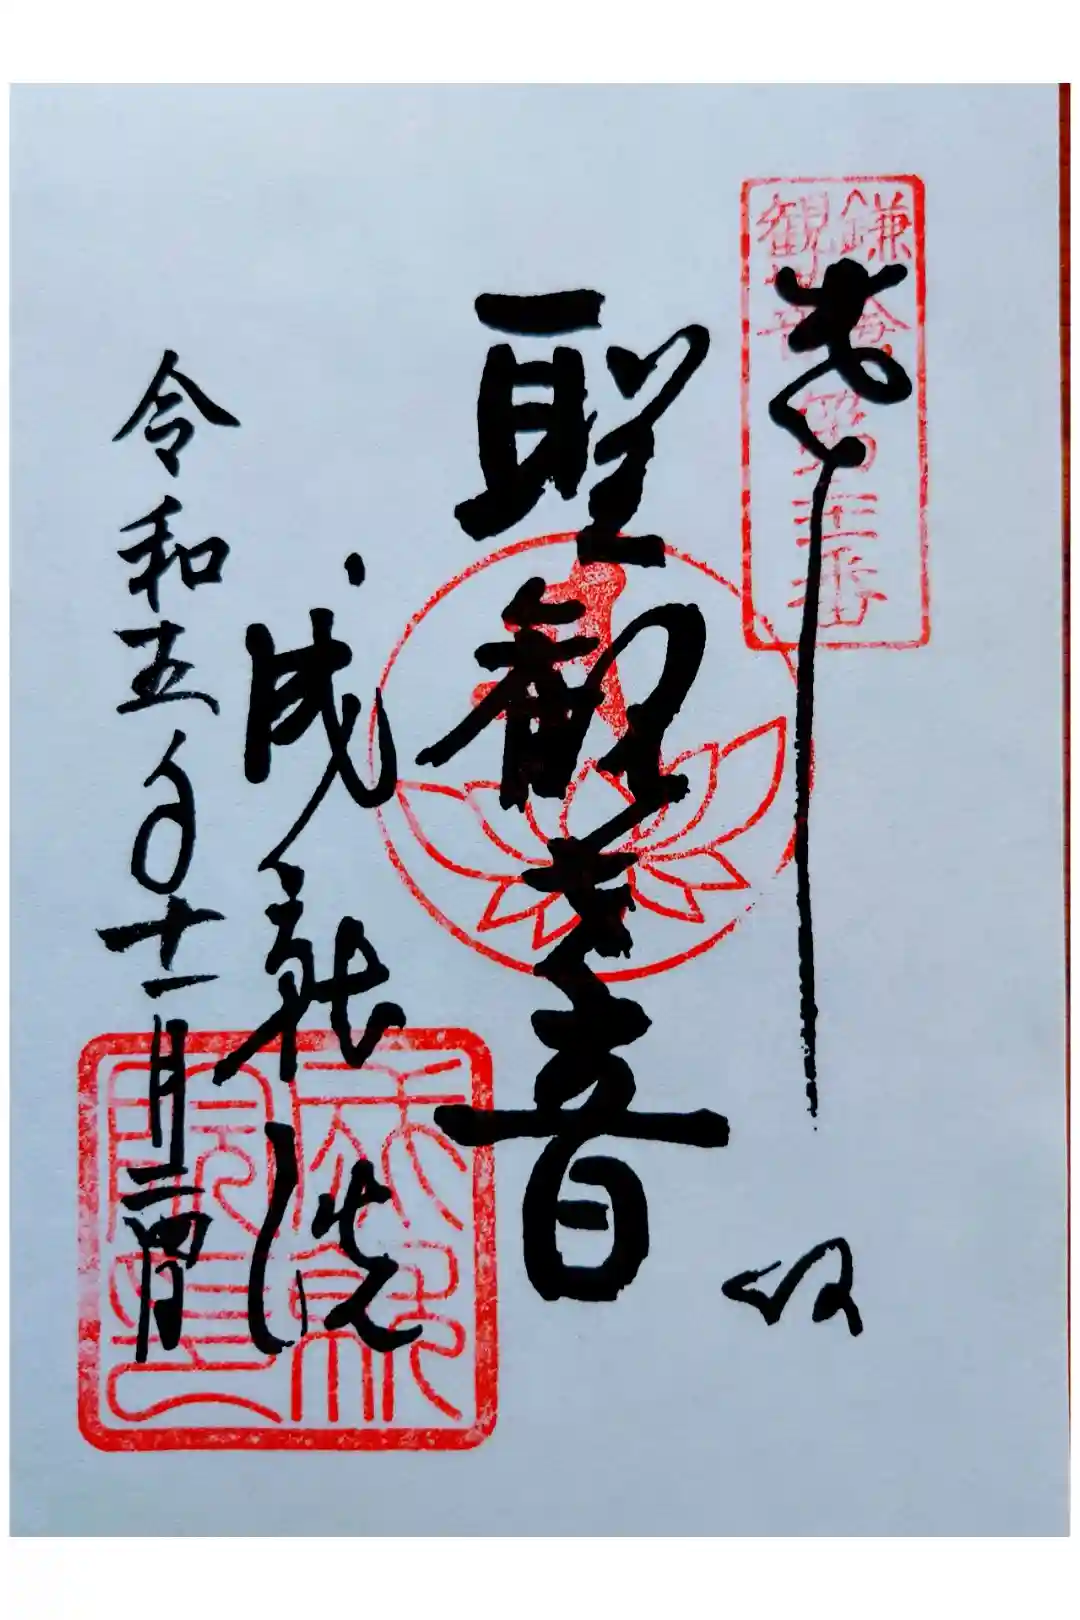 鎌倉
観世音
第廿一番
奉拝
聖観世音
成就院
令和五年十一月二四日